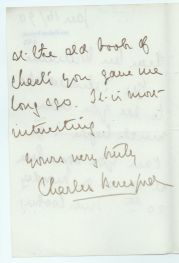 at the old book of
check you gave me
long ago. It is most
interesting
Yours very truly
Charles Beresford